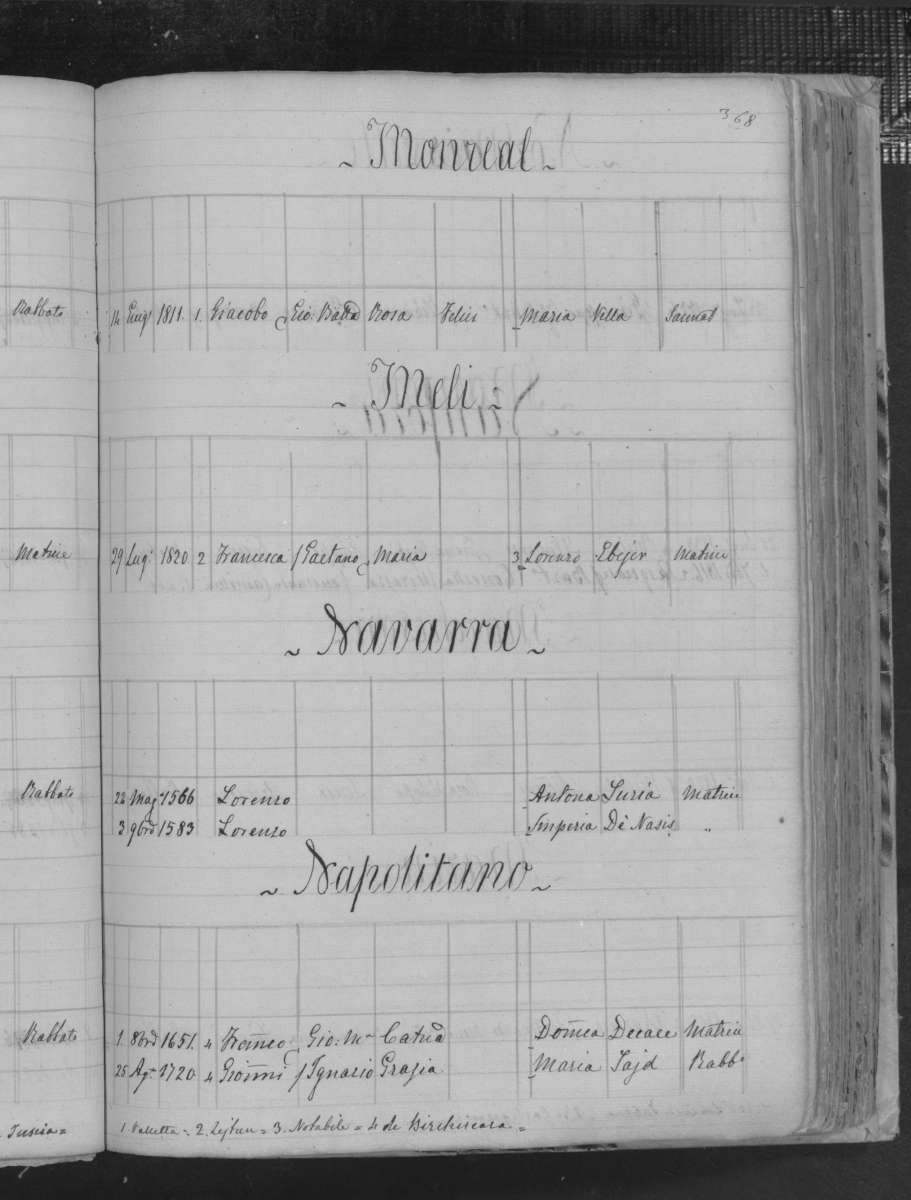 368
~ Monreal ~
Rabbato
14 Giug. 1811. 1. Giacobo Gio. Batta Rosa Felici Maria Villa Sannat
~ Meli ~
Matrice
29 Lug. 1820 2 Francesca / Gaetano Maria 3 Lorenzo Ebejer Matrice
~ Navarra ~
Rabbato
22 Mag. 1566 Lorenzo Antona Suria Matrice
3 9bre 1583 Lorenzo Imperia De Nasis "
~ Napolitano ~
Rabbato
1 8bre 1651. 4 Franco Gio: Ma Catna Domca Decace Matrice
25 Ag. 1720 4 Gionni / Ignazio Grazia Maria Tajd Rabbo
1. Valletta = 2. Zejtun = 3. Notabile = 4 de Birchircara =